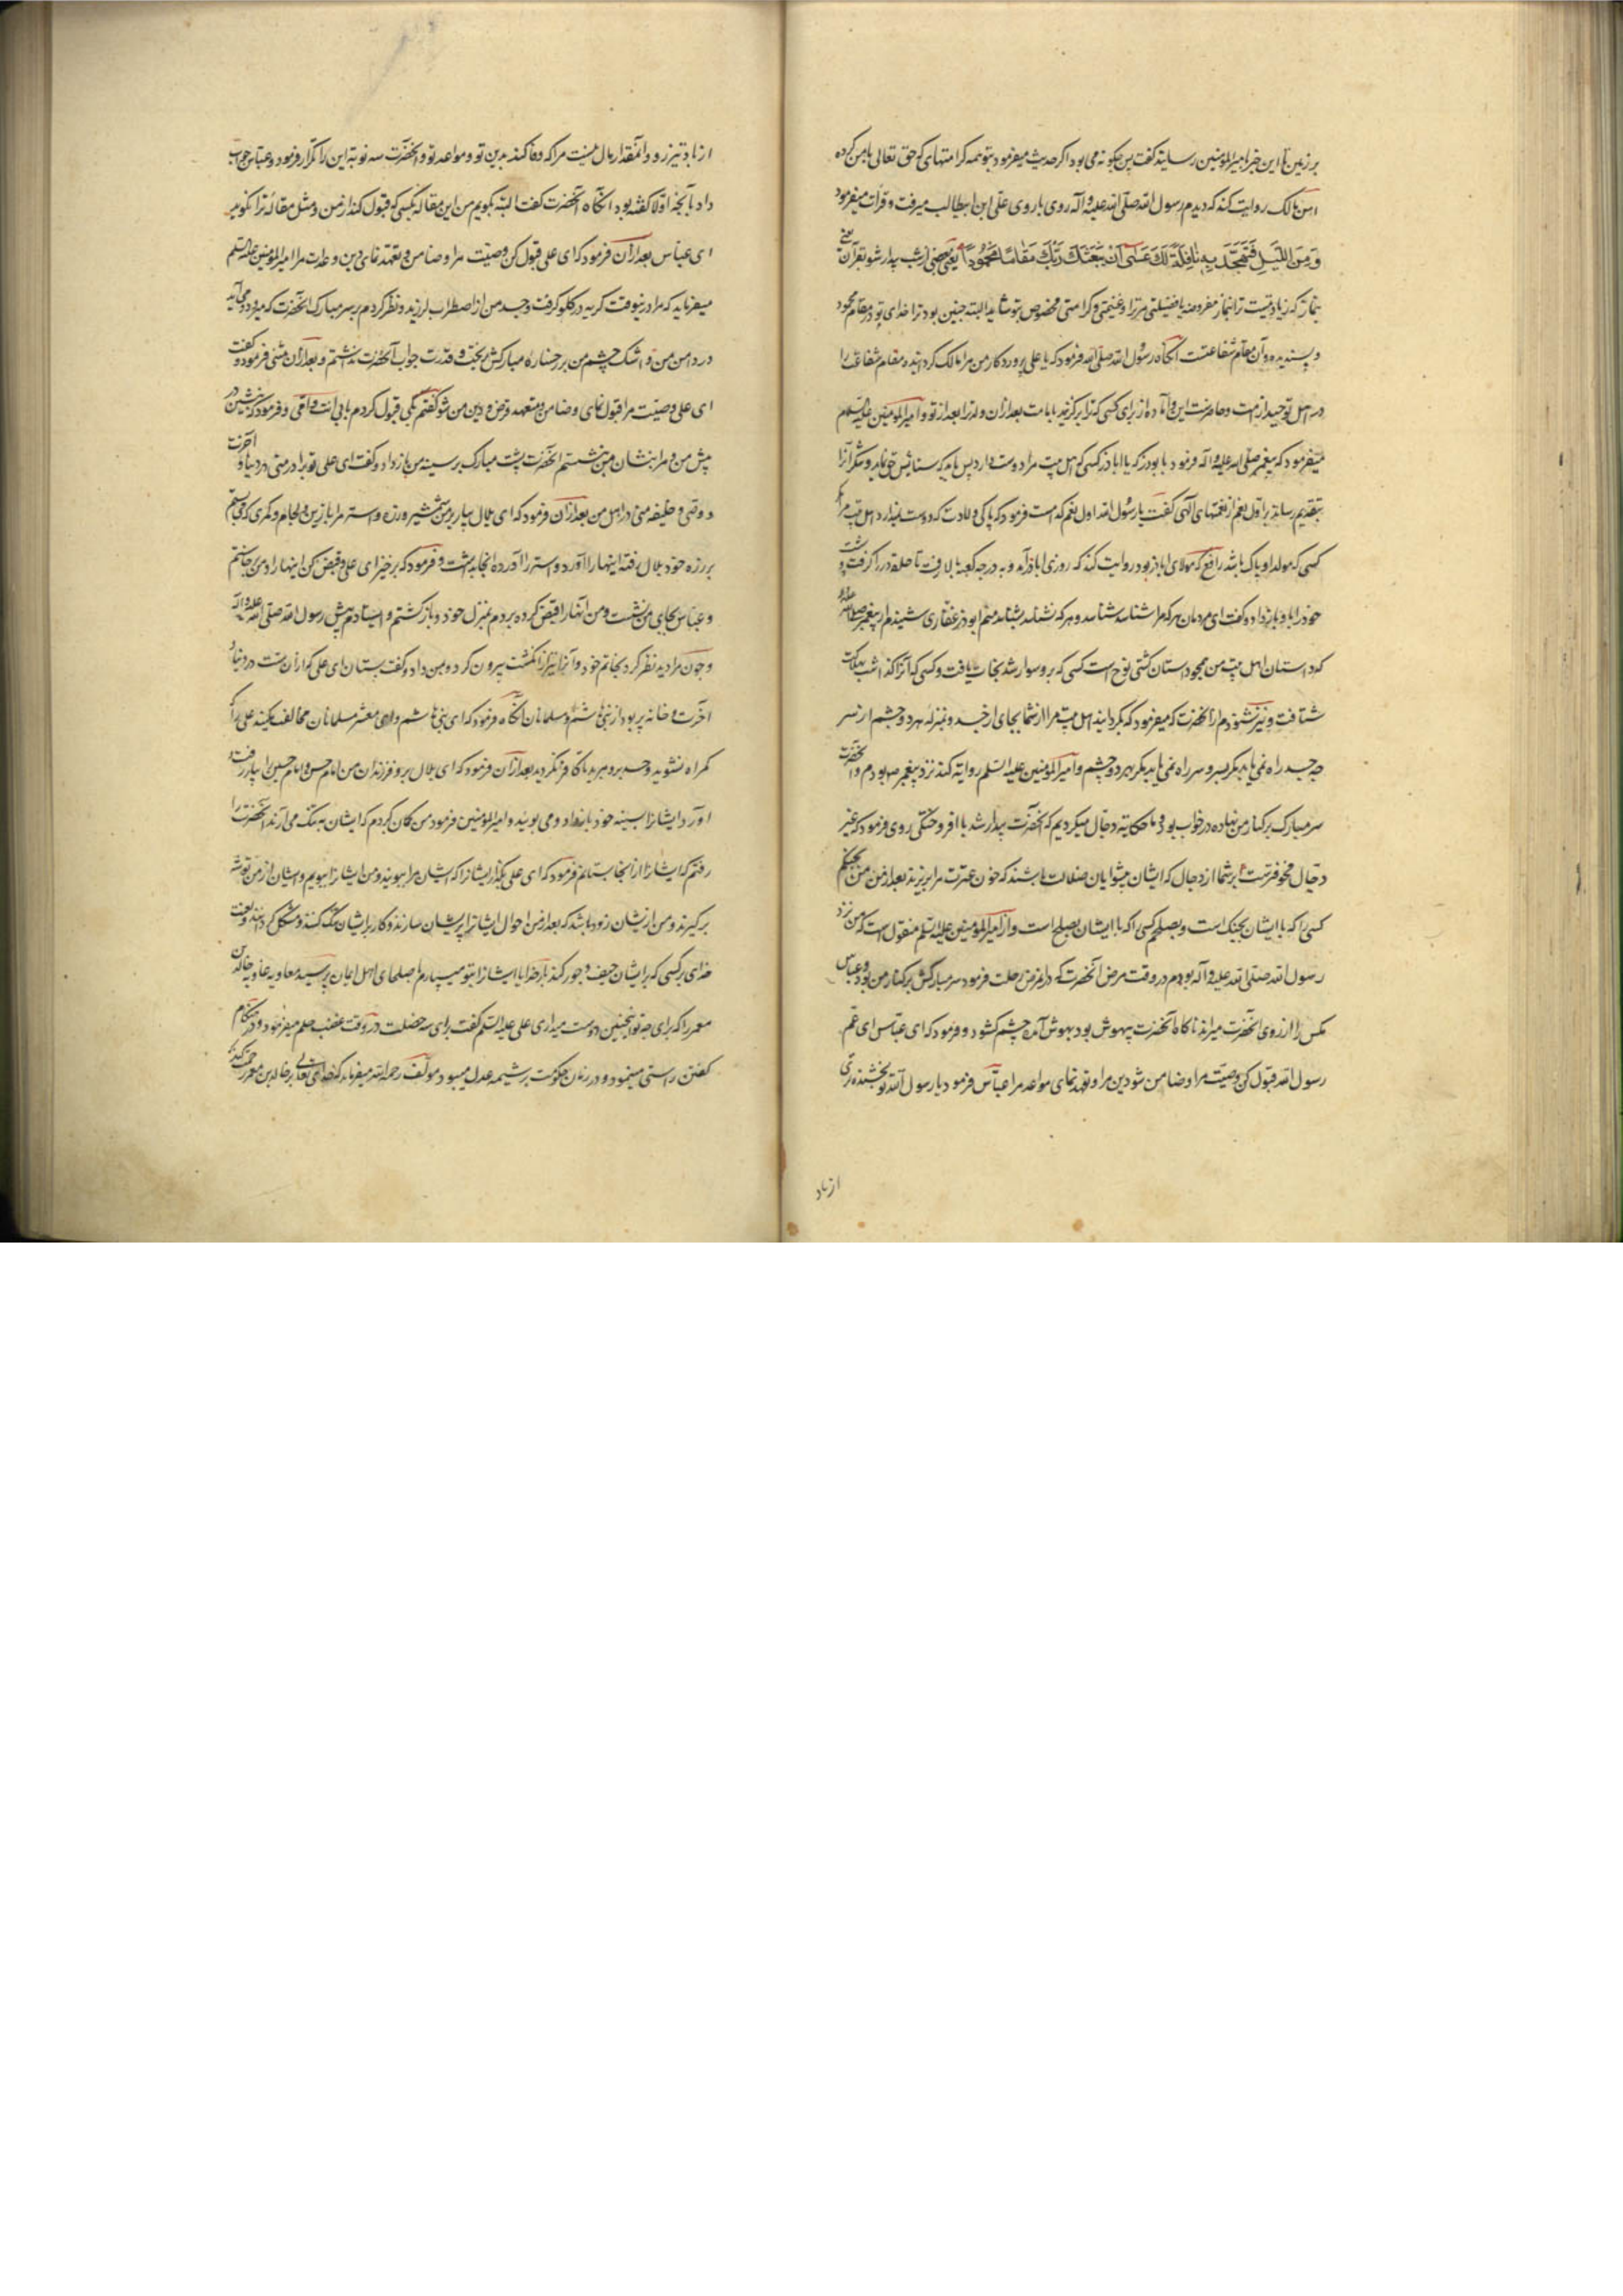 بر زمین تا این خبر بامیرالمؤمنین رسانید گفت پس چگونه می بود اگر حدیث میفرمود بتو همه کرامتهای که حق تعالی با من کرده
انس مالک روایت کند که دیدم رسول الله صلّی الله علیه وآله روی با روی علی ابن ابیطالب میرفت و قرات میفرمود
وَمِنَ اللَّيْلِ فَتَهَجَّدْ بِهِ نَافِلَةً لَكَ عَسَىٰ أَنْ يَبْعَثَكَ رَبُّكَ مَقَامًا مَحْمُودًا یعنی بعضی از شب بیدار شو بقرآن
نماز که زیادتیست ترا بنماز مفروضه یا فضیلتی مر ترا و غنیمتی و کرامتی مخصوص بتو شاید البته چنین بود ترا خدای تو در مقام محمود
و پسندیده و آن مقام شفاعتست آنگاه رسول الله صلی الله فرمود که یا علی پروردکار من مرا مالک کردانیده مقام شفاعت را
در اهل توحید از امت و امیرالمؤمنین علیه السلم
میفرمود که پیغمبر صلی الله علیه وآله فرمود با بوذر که یا اباذر کسی که اهل بیت مرا دوست دارد پس باید که ستایش حق نماید و شکر آنرا
بتقدیم رساند بر اول نعم از نعمتهای الهی گفت یا رسول الله اول نعم کدامست فرمود که پاکی ولادت که دوست ندارد اهل بیت مرا مگر
کسی که مولد او پاک باشد رافع که مولای اباذر بود روایت کند که روزی اباذر آمد و به درجه کعبه بالا رفت تا حلقه در را گرفت و پشت
خود را باو باز داد و گفت ای مردمان هر که مرا شناسد شناسد و هر که نشناسد بشناسد منم ابوذر غفاری شنیدم از پیغمبر صلی الله علیه وآله
که داستان اهل بیت من همچو داستان کشتی نوح است کسی که برو سوار شد نجات یافت و کسی که آنرا گذاشت بهلاکت
شتافت و نیز شنودم از آنحضرت که میفرمود که بکردانید اهل بیت مرا از شما بجای سر از جسد و بمنزله هر دو چشم از سر
چه جسد راه نمی یابد مگر بسر و سر راه نمی یابد مگر بهر دو چشم و امیرالمؤمنین علیه السلم روایة کند نزد پیغمبر ص بودم و آنحضرت
سر مبارک بر کنار من نهاده در خواب بود و ما حکایة دجال میکردیم که آنحضرت بیدار شد با افروختگی روی فرمود که غیر
دجال مخوفترست بر شما از دجال که ایشان پیشوایان ضلالت باشند که خون عترت مرا بریزند بعد از من من بجنگم
کسی را که با ایشان بجنگ است و بصلحم کسی را که با ایشان بصلح است و از امیرالمؤمنین علیه السلم منقول است که من نزد
رسول الله صلّی الله علیه وآله بودم در وقت مرض آنحضرت که در آن مرض رحلت فرمود سر مبارکش بر کنار من بود و عباس
مکس را از روی آنحضرت میراند ناگاه آنحضرت بیهوش بود بهوش آمد چشم کشود و فرمود که ای عباس ای عم
رسول الله قبول کن وصیت مرا و ضامن شو دین مرا و تعهد نمای مواعد مرا عباس فرمود یا رسول الله تو بخشنده تری
از باد
از باد تیز رو و آنمقدار مال نیست مرا که وفا کند بدین تو و مواعد تو و آنحضرت سه نوبه این را تکرار فرمود و عباس جواب
داد بآنچه اولا گفته بود آنگاه آنحضرت گفت البته بگویم من این مقاله بکسی که قبول کند از من و مثل مقاله ترا نکوید
ای عباس بعد از آن فرمود که ای علی قبول کن وصیت مرا و ضامن و تعهد نمای دین و عدات مرا امیرالمؤمنین علیه السلم
میفرماید که مرا در نیوقت گریه در گلو گرفت و جسد من از اضطراب لرزید و نظر کردم بر سر مبارک آنحضرت که میرود و می آید
در دامن من و اشک چشم من بر رخساره مبارکش ریخت و قدرت جواب آنحضرت نداشتم و بعد از آن مثنی فرمود و گفت
ای علی وصیت مرا قبول نمای و ضامن و متعهد قرض و دین من شو گفتم بلی قبول کردم بابی انت و امی و فرمود که بنشین در
پیش من و مرا بنشان پس بنشستم آنحضرت پشت مبارک بر سینه من باز داد و گفت ای علی تو برادر منی در دنیا و آخرت
و وصی و خلیفه منی در اهل من بعد از آن فرمود که ای بلال بیار بر من شمشیر و زره و استر مرا با زین و لجام و کمری که می بستم
بر زره خود بلال رفته اینها را آورد و استر را آورده آنجا بداشت و فرمود که برخیز ای علی و قبض کن اینها را و من برخاستم
و عباس بجای من نشست و من آنها را قبض کرده بردم بمنزل خود و باز گشتم و ایستادم پیش رسول الله صلی الله علیه وآله
و چون مرا دید نظر کرد بخاتم خود و آنرا نیز از انگشت بیرون کرد و بمن داد و گفت بستان ای علی که از آن تست در دنیا و
آخرت و خانه پر بود از بنی هاشم و مسلمانان آنگاه فرمود که ای بنی هاشم و ای معشر مسلمانان مخالفت مکنید علی را که
گمراه نشوید و حسد برو مبرید تا کافر نگردید بعد از آن فرمود که ای بلال برو فرزندان من امام حسن و امام حسین را بیار رفت و
آورد ایشانرا بسینه خود باز نهاد و می بوئید و امیرالمؤمنین فرمود من گمان کردم که ایشان به تنگ می آرند آنحضرت را
رفتم که ایشان را از آنجا بستانم فرمود که ای علی بگذار ایشانرا که ایشان مرا ببویند و من ایشانرا ببویم و ایشان از من توشه
برگیرند و من از ایشان زود باشد که بعد از من احوال ایشانرا پریشان سازند و کار بر ایشان تنگ کنند و مشکل گردانند و لعنت
خدای بر کسی که بر ایشان حیف و جور کند بار خدایا ایشانرا بتو میسپارم و با صلحای اهل ایمان پرسید معاویه علیه الهاویه خالد بن
معمر را که برای چه تو اینچنین دوست میداری علی علیه السلم گفت برای سه خصلت در وقت غضب حلم میفرمود و در هنگام
گفتن راستی مینمود و در زمان حکومت بر شیمه عدل میبود مولف رحمه الله میفرماید که خدای تعالی بر خالد بن معمر رحمت کند که